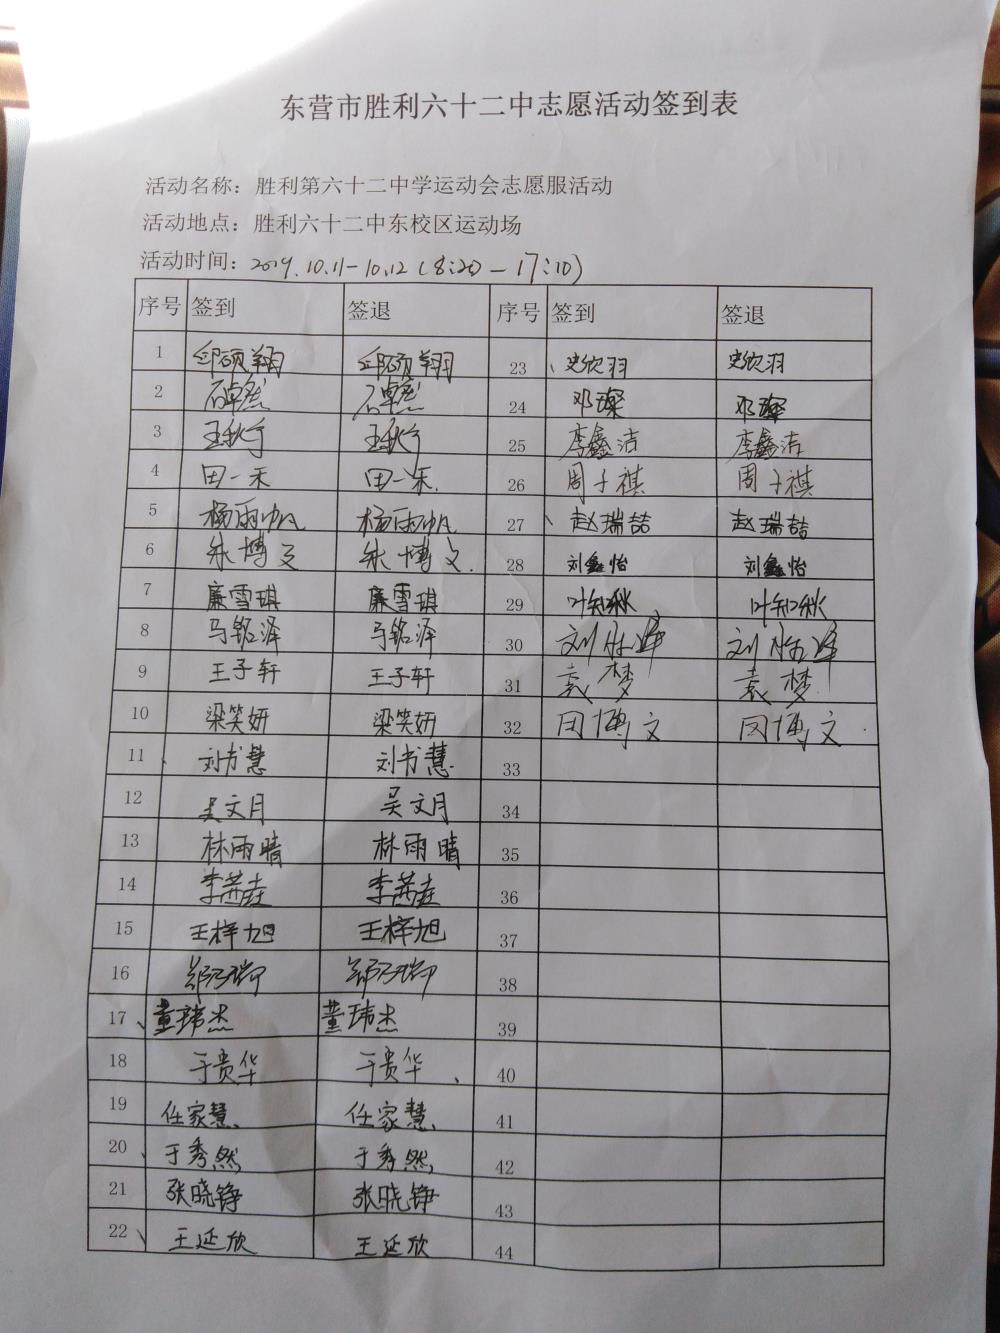 东营市胜利六十二中志愿活动签到表
活动名称：胜利第六十二中学运动会志愿服活动
活动地点：胜利六十二中东校区运动场
活动时间：2019.10.11-10.12（8:20-17:10）
序号 签到 签退 序号 签到 签退
1 邱硕翔 邱硕翔 23 史欣羽 史欣羽
2 石卓然 石卓然 24 邓璨 邓璨
3 王秋宁 王秋宁 25 李鑫洁 李鑫洁
4 田一禾 田一禾 26 周子祺 周子祺
5 杨雨帆 杨雨帆 27 赵瑞喆 赵瑞喆
6 朱博文 朱博文 28 刘鑫怡 刘鑫怡
7 廉雪琪 廉雪琪 29 叶知秋 叶知秋
8 马铭泽 马铭泽 30 刘 刘
9 王子轩 王子轩 31 袁梦 袁梦
10 梁笑妍 梁笑妍 32 田博文 田博文
11 刘书慧 刘书慧 33
12 吴文月 吴文月 34
13 林雨晴 林雨晴 35
14 李茜 李茜 36
15 王梓旭 王梓旭 37
16 郑乃瑞 郑乃瑞 38
17 董玮杰 董玮杰 39
18 于贵华 于贵华 40
19 任家慧 任家慧 41
20 于秀然 于秀然 42
21 张晓铮 张晓铮 43
22 王延欣 王延欣 44